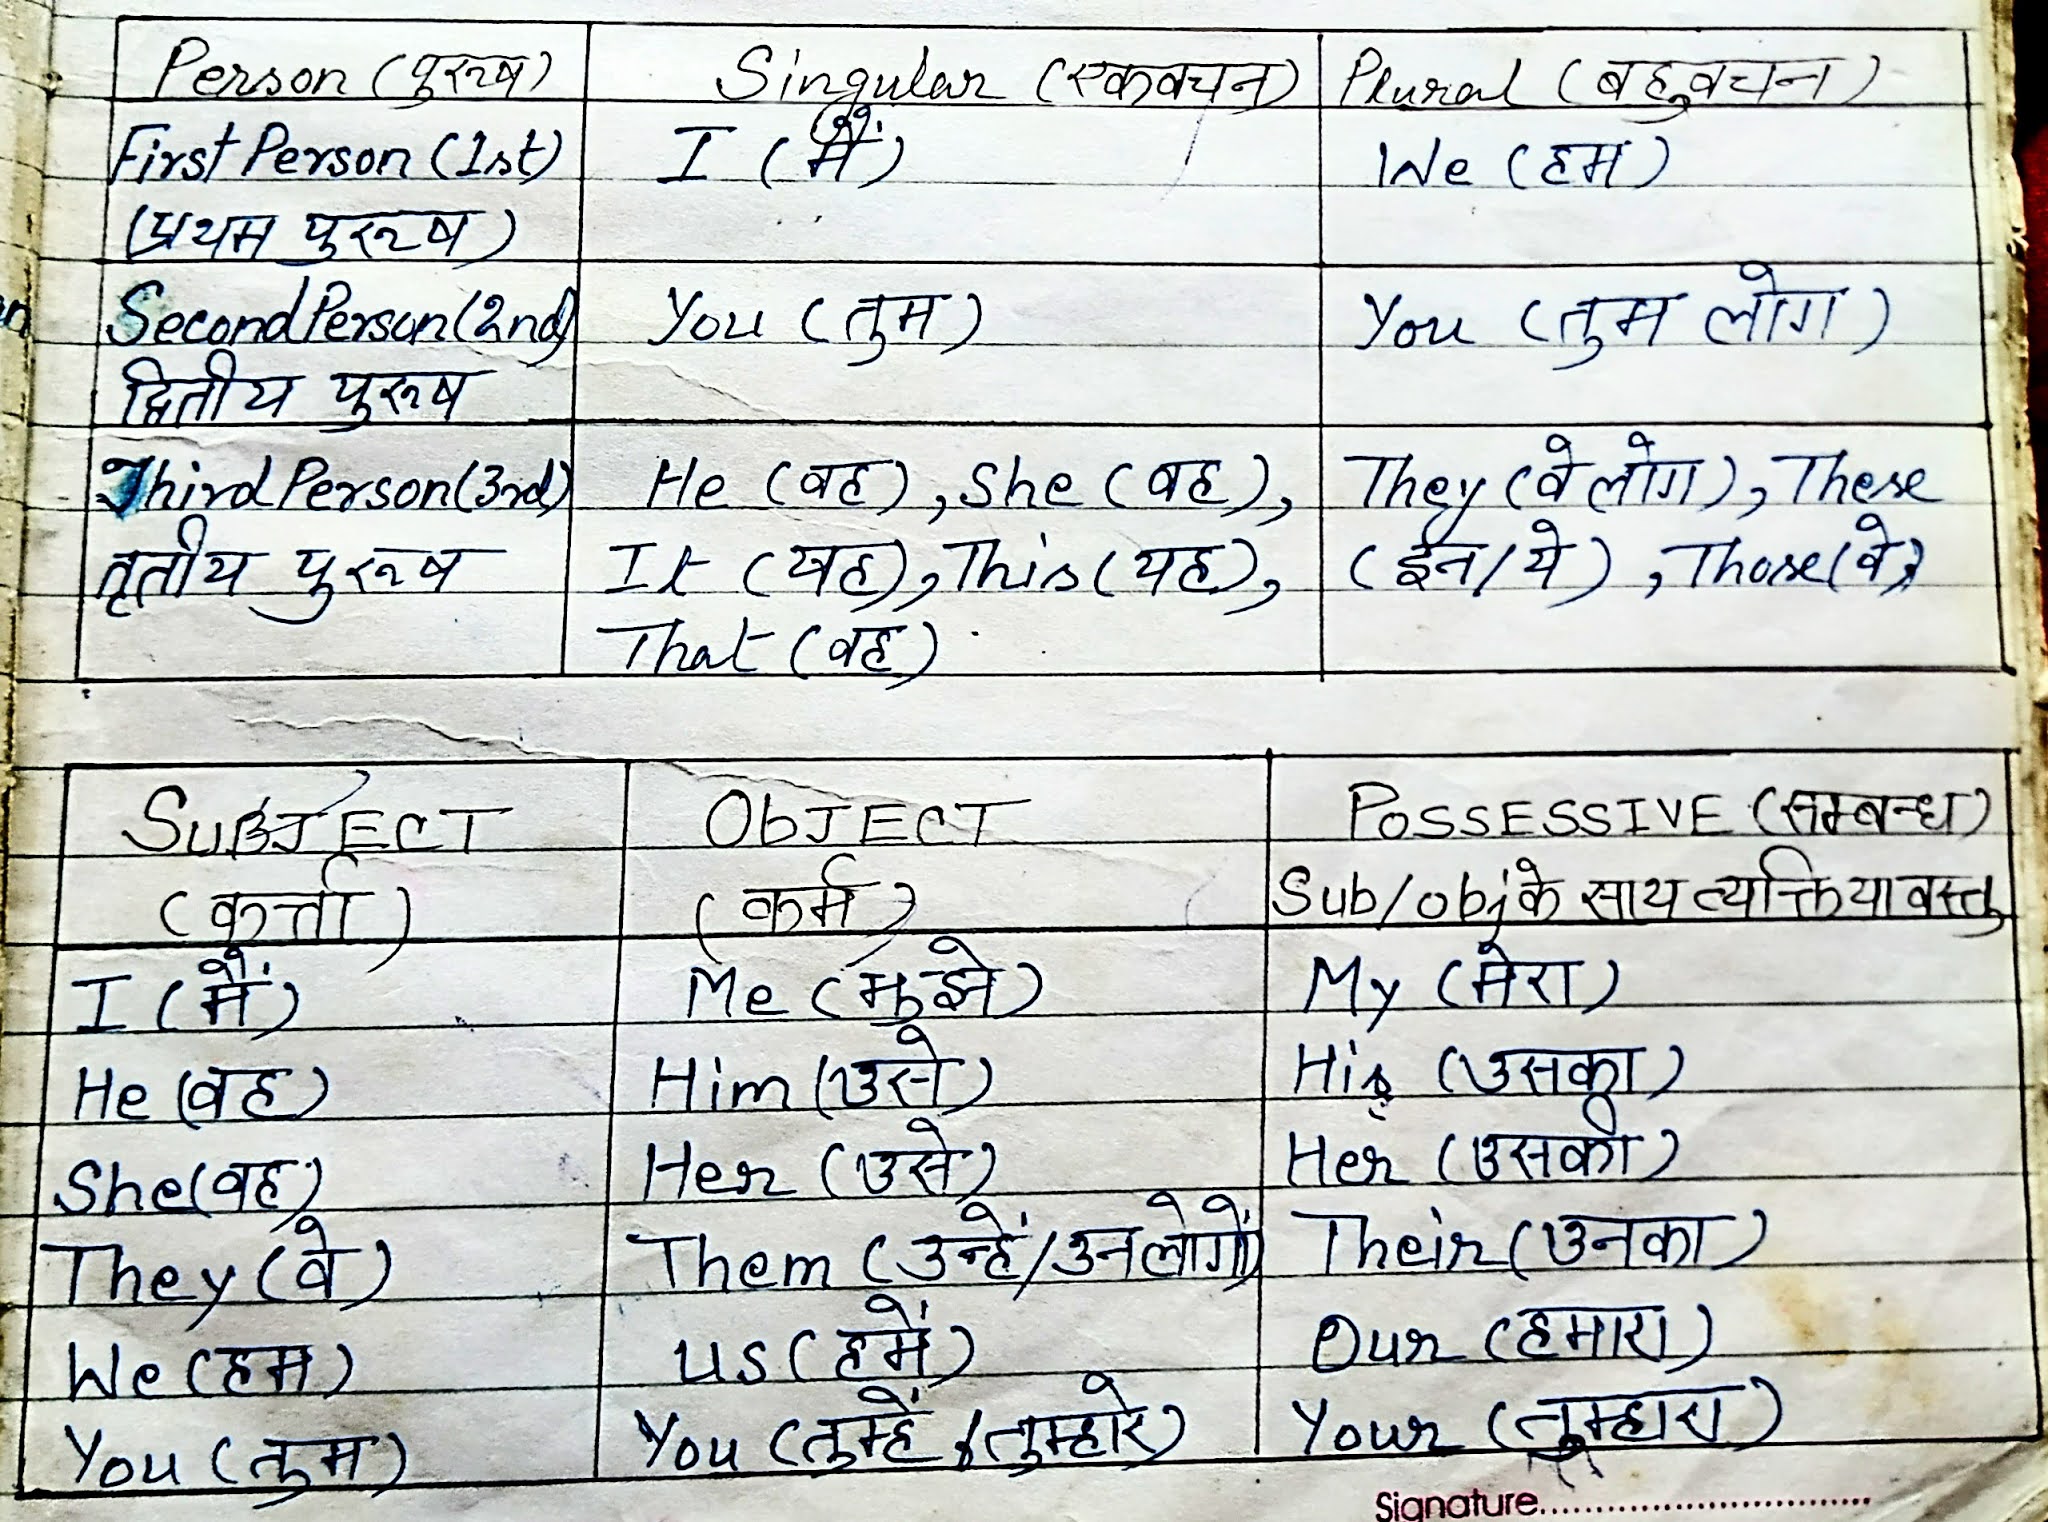 Person (पुरूष) Singular (एकवचन) Plural (बहुवचन)
First Person (1st) I (मैं) We (हम)
(प्रथम पुरूष)
Second Person (2nd) You (तुम) You (तुम लोग)
द्वितीय पुरूष
Third Person (3rd) He (वह), She (वह), They (वे लोग), These
तृतीय पुरूष It (यह), This (यह), (ईन/ये), Those (वे)
That (वह)
SUBJECT OBJECT POSSESSIVE (सम्बन्ध)
(कर्त्ता) (कर्म) Sub/obj के साथ व्यक्ति या वस्तु
I (मैं) Me (मुझे) My (मेरा)
He (वह) Him (उसे) His (उसका)
She (वह) Her (उसे) Her (उसकी)
They (वे) Them (उन्हें/उनलोगों) Their (उनका)
We (हम) us (हमें) Our (हमारा)
You (तुम) You (तुम्हें / तुम्हारे) Your (तुम्हारा)
Signature